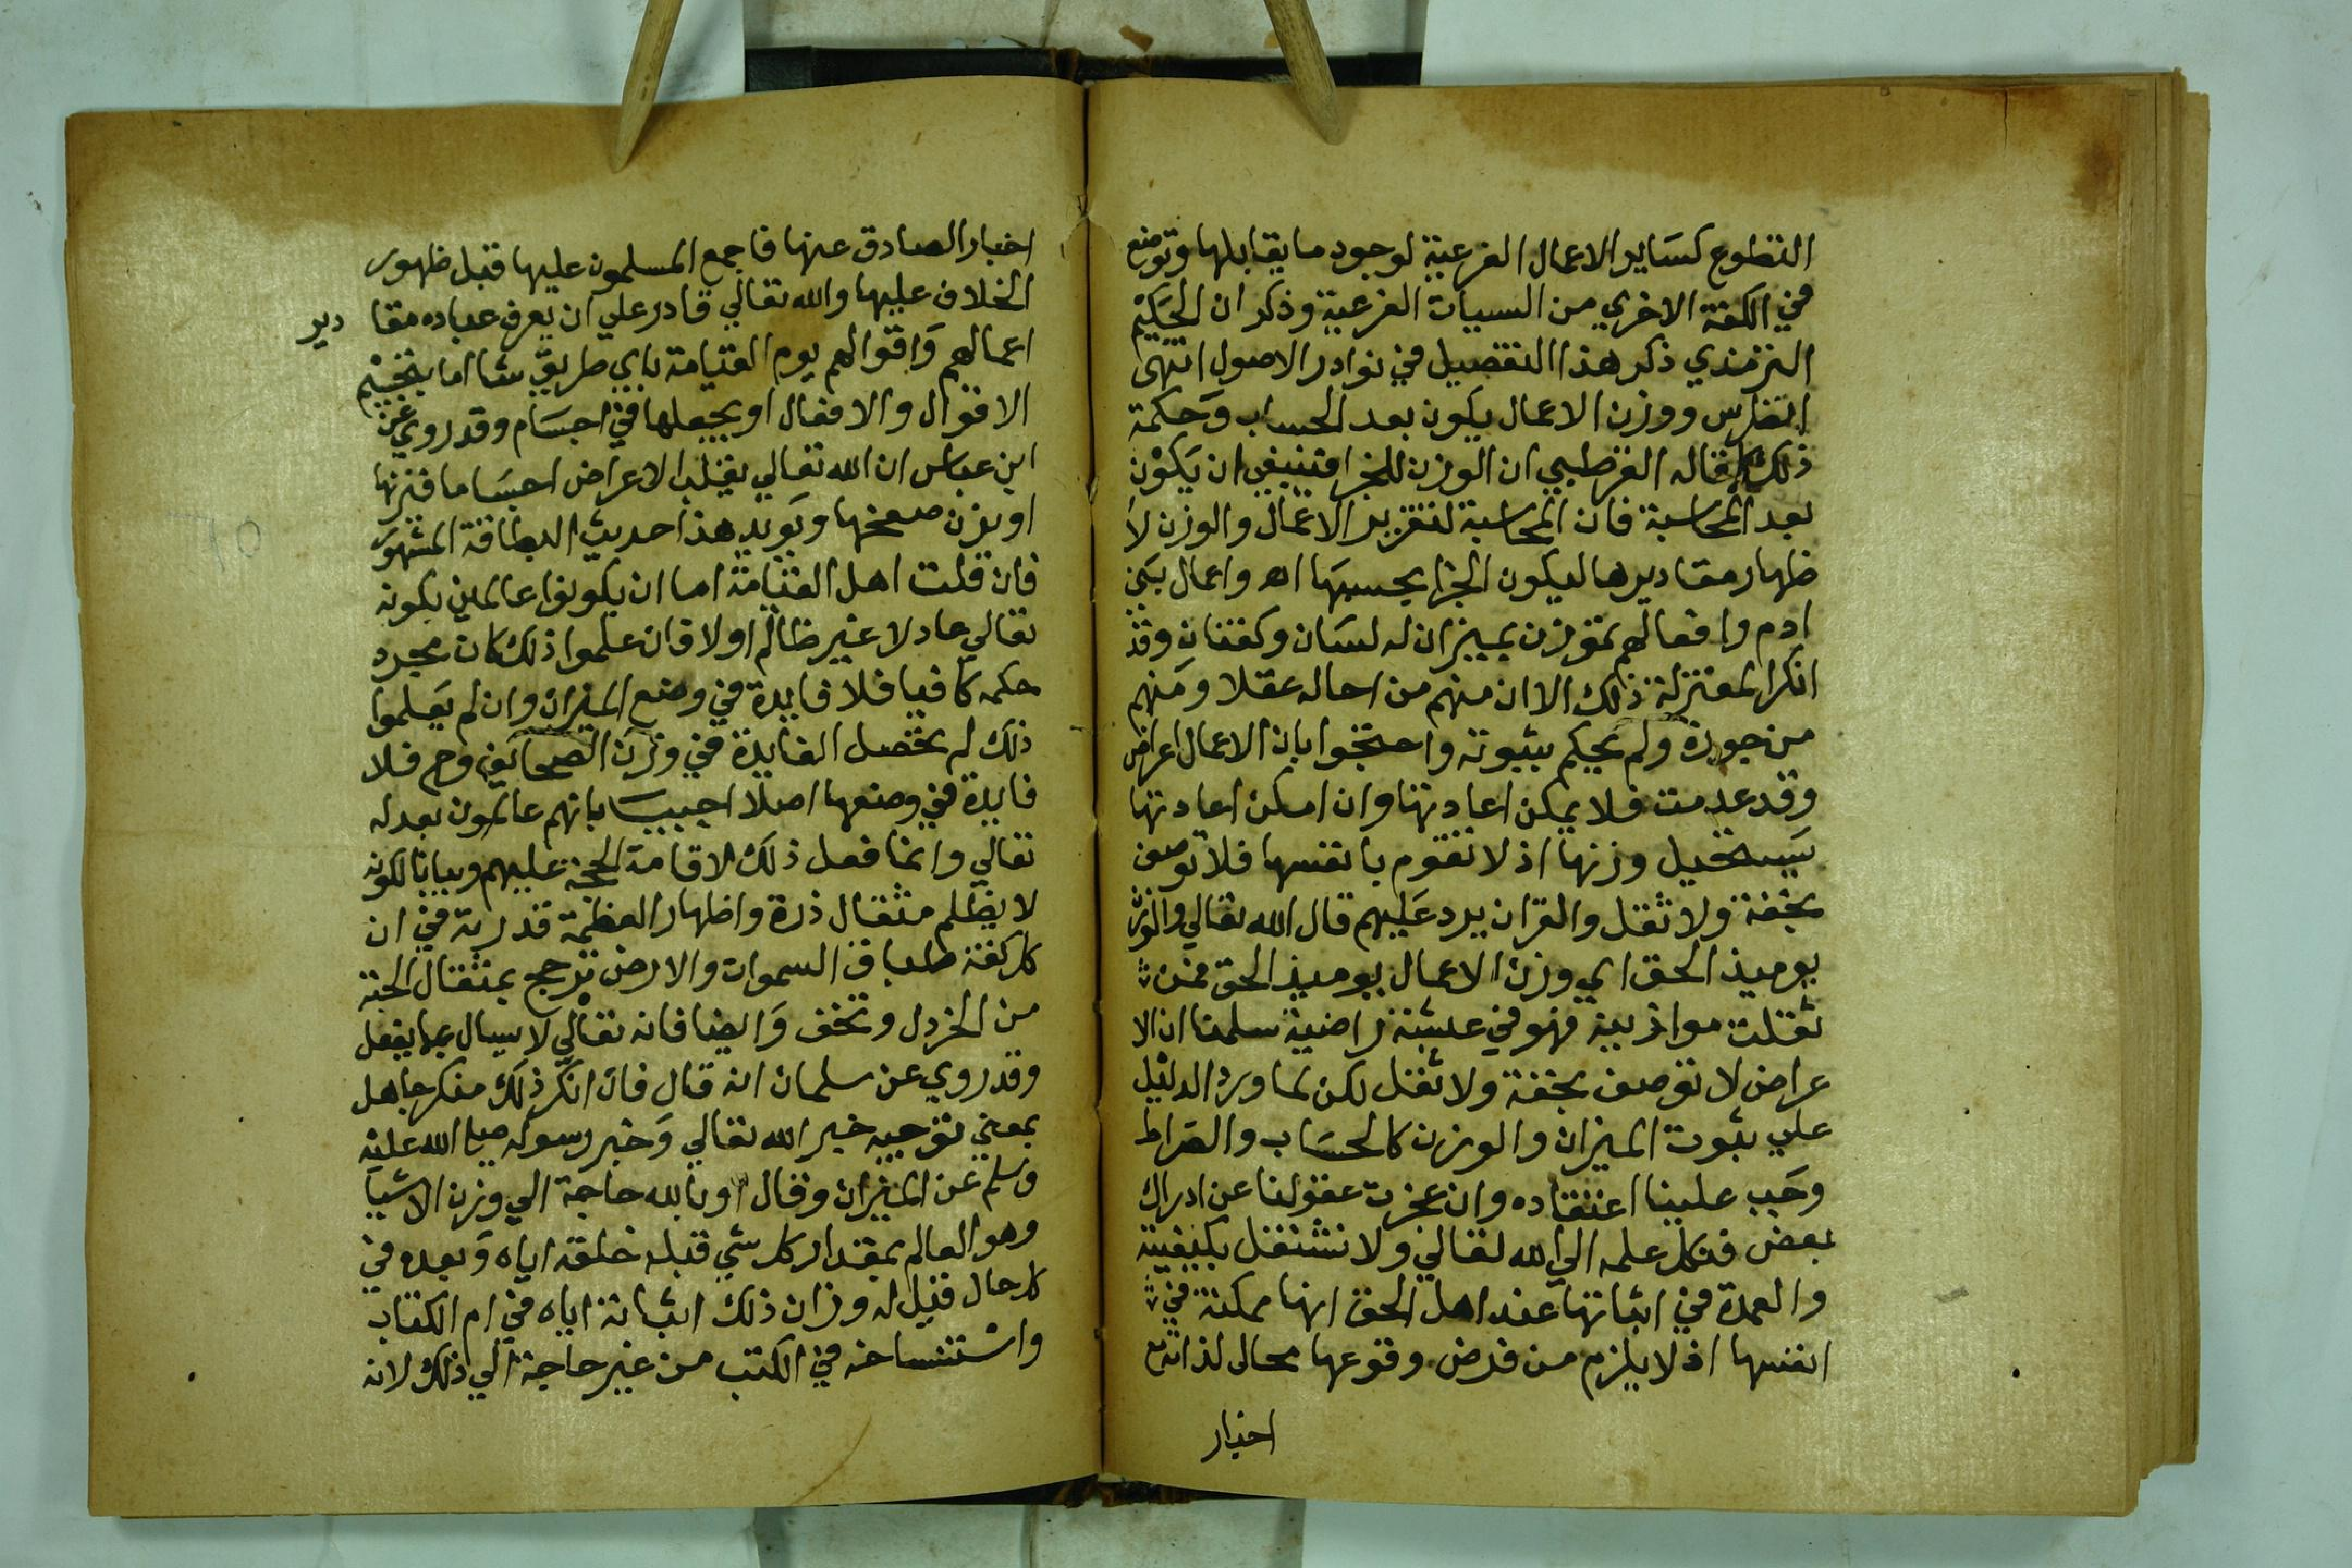 التطوع كساير الاعمال الفرعية لوجود ما يقابلها وتوضع
في الكفة الاخري من السيات الفرعية وذكر ان الحكيم
الترمذي ذكر هذا التفصيل في نوادر الاصول انتهى
الخامس ووزن الاعمال يكون بعد الحساب وحكمة
ذلك كما قاله القرطبي ان الوزن للجزا فينبغي ان يكون
بعد المحاسبة فان المحاسبة لتقرير الاعمال والوزن لا
ظهار مقاديرها ليكون الجزا بحسبها اه واعمال بني
ادم وافعالهم توزن بميزان له لسان وكفتان وقد
انكر المعتزلة ذلك الا ان منهم من احاله عقلا ومنهم
من جوزه ولم يحكم بثبوته واحتجوا بان الاعمال اعراض
وقد عدمت فلا يمكن اعادتها وان امكن اعادتها
يستحيل وزنها اذ لا تقوم بانفسها فلا توصف
بخفة ولا ثقل والقران يرد عليهم قال الله تعالي والوزن
يوميذ الحق اي وزن الاعمال يوميذ الحق فمن
ثقلت موازينه فهو في عيشة راضية سلمنا ان الا
عراض لا توصف بخفة ولا ثقل لكن لما ورد الدليل
علي ثبوت الميزان والوزن كالحساب والصراط
وجب علينا اعتقاده وان عجزت عقولنا عن ادراك
بعض فنكل علمه الي الله تعالي ولا نشتغل بكيفيته
والعمدة في اثباتها عند اهل الحق انها ممكنة في
انفسها اذ لا يلزم من فرض وقوعها محال لذاته مع
اخبار
اخبار الصادق عنها فاجمع المسلمون عليها قبل ظهور
الخلاف عليها والله تعالي قادر علي ان يعرف عباده مقا دير
اعمالهم واقوالهم يوم القيامة باي طريق شا اما بتجسيم
الاقوال والافعال او بجعلها في اجسام وقد روي عن
ابن عباس ان الله تعالي يقلب الاعراض اجساما فيزنها
او يزن صحفها ويويد هذا حديث البطاقة المشهور
فان قلت اهل القيامة اما ان يكونوا عالمين بكونه
تعالي عادلا غير ظالم اولا فان علموا ذلك كان مجرد
حكمه كافيا فلا فايدة في وضع الميزان وان لم يعلموا
ذلك لم يحصل الفايدة في وزن الصحائف وح فلا
فايدة في وضعها اصلا اجيب بانهم عالمون بعدله
تعالي وانما فعل ذلك لاقامة الحجة عليهم وبيانا لكونه
لا يظلم مثقال ذرة واظهار العظمة قدرته في ان
كل كفة طباق السموات والارض ترجح بمثقال الحبة
من الخردل وتخف وايضا فانه تعالي لا يسال عما يفعل
وقد روي عن سلمان انه قال فان انكر ذلك منكر جاهل
بمعني توجيه خبر الله تعالي وخبر رسوله صلي الله عليه
وسلم عن الميزان وقال اوبالله حاجة الي وزن الاشيا
وهو العالم بمقدار كل شي قبله خلقه اياه وبعده في
كل حال قيل له وزان ذلك اثباته اياه في ام الكتاب
واستنساخه في الكتب من غير حاجة الي ذلك لانه